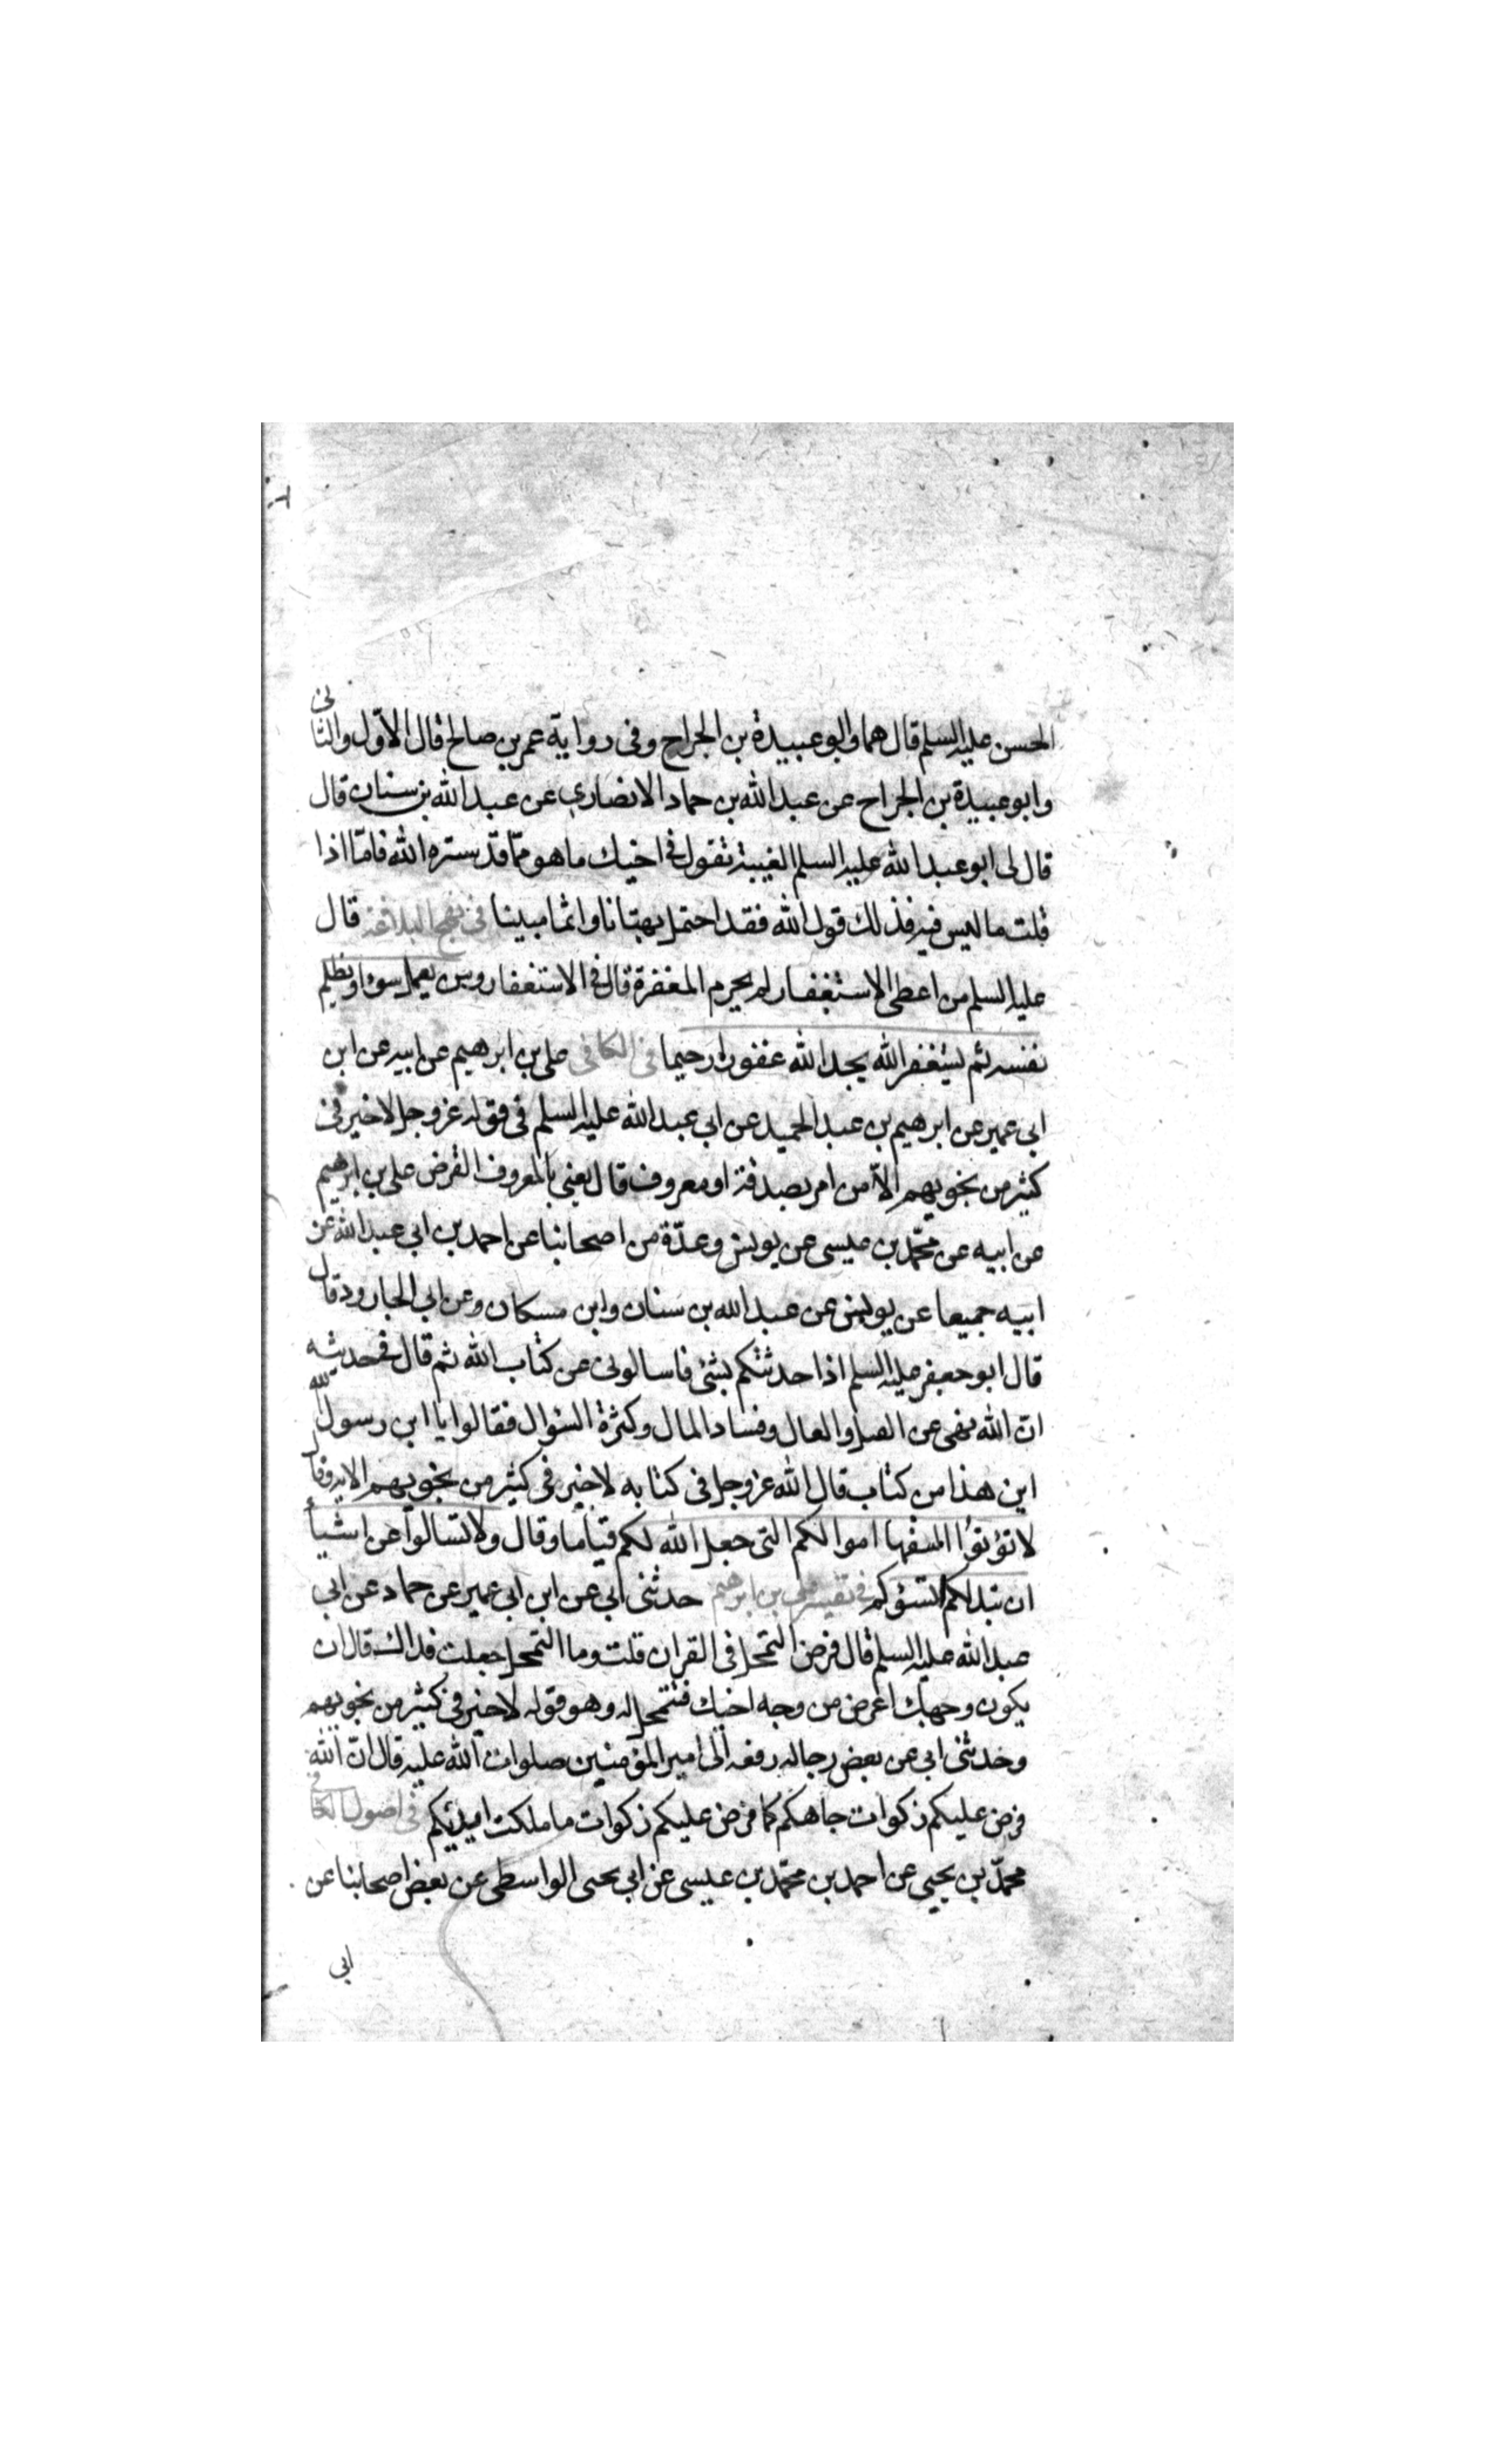 الحسن عليه السلم قال هما وابو عبيدة بن الجراح وفى رواية عمر بن صالح قال الاول والثانى
وابو عبيدة بن الجراح عن عبد الله بن حماد الانصاري عن عبد الله بن سنان قال
قال لى ابو عبد الله عليه السلم الغيبة تقول فى اخيك ما هو مما قد ستره الله فامّا اذا
قلت ما ليس فيه فذلك قول الله فقد احتمل بهتانا واثما مبينا فى نهج البلاغة قال
عليه السلم من اعطى الاستغفار لم يحرم المغفرة قال فى الاستغفار ومن يعمل سوءا او يظلم
نفسه ثم يستغفر الله يجد الله غفورا رحيما فى الكافى على بن ابرهيم عن ابيه عن ابن
ابى عمير عن ابرهيم بن عبد الحميد عن ابى عبد الله عليه السلم فى قوله عز وجل لا خير فى
كثير من نجويهم الّا من امر بصدقة او معروف قال يعنى بالمعروف القرض على بن ابرهيم
عن ابيه عن محمّد بن عيسى عن يونس وعدّة من اصحابنا عن احمد بن ابى عبد الله عن
ابيه جميعا عن يونس عن عبد الله بن سنان وابن مسكان وعن ابى الجارود قال
قال ابو جعفر عليه السلم اذا حدثتكم بشئ فاسالونى عن كتاب الله ثم قال فى حديثه
انّ الله نهى عن القيل والقال وفساد المال وكثرة السؤال فقالوا يا ابن رسول الله
اين هذا من كتاب قال الله عز وجل فى كتابه لا خير فى كثير من نجويهم الاية وقال
لا تؤتوا السفها اموالكم التى جعل الله لكم قياما وقال ولا تسالوا عن اشيأ
ان تبد لكم تسؤكم فى تفسير على بن ابرهيم حدثنى ابى عن ابن ابى عمير عن حماد عن ابى
عبد الله عليه السلم قال فرض التمحل فى القران قلت وما التمحل جعلت فداك قال ان
يكون وجهك اعرض من وجه اخيك فتمحل له وهو قوله لا خير فى كثير من نجويهم
وحدثنى ابى عن بعض رجاله رفعه الى امير المؤمنين صلوات الله عليه قال انّ الله
فرض عليكم زكوات جاهكم كما فرض عليكم زكوات ما ملكت ايديكم فى اصول الكافى
محمّد بن يحيى عن احمد بن محمّد بن عيسى عن ابى يحيى الواسطى عن بعض اصحابنا عن
ابى